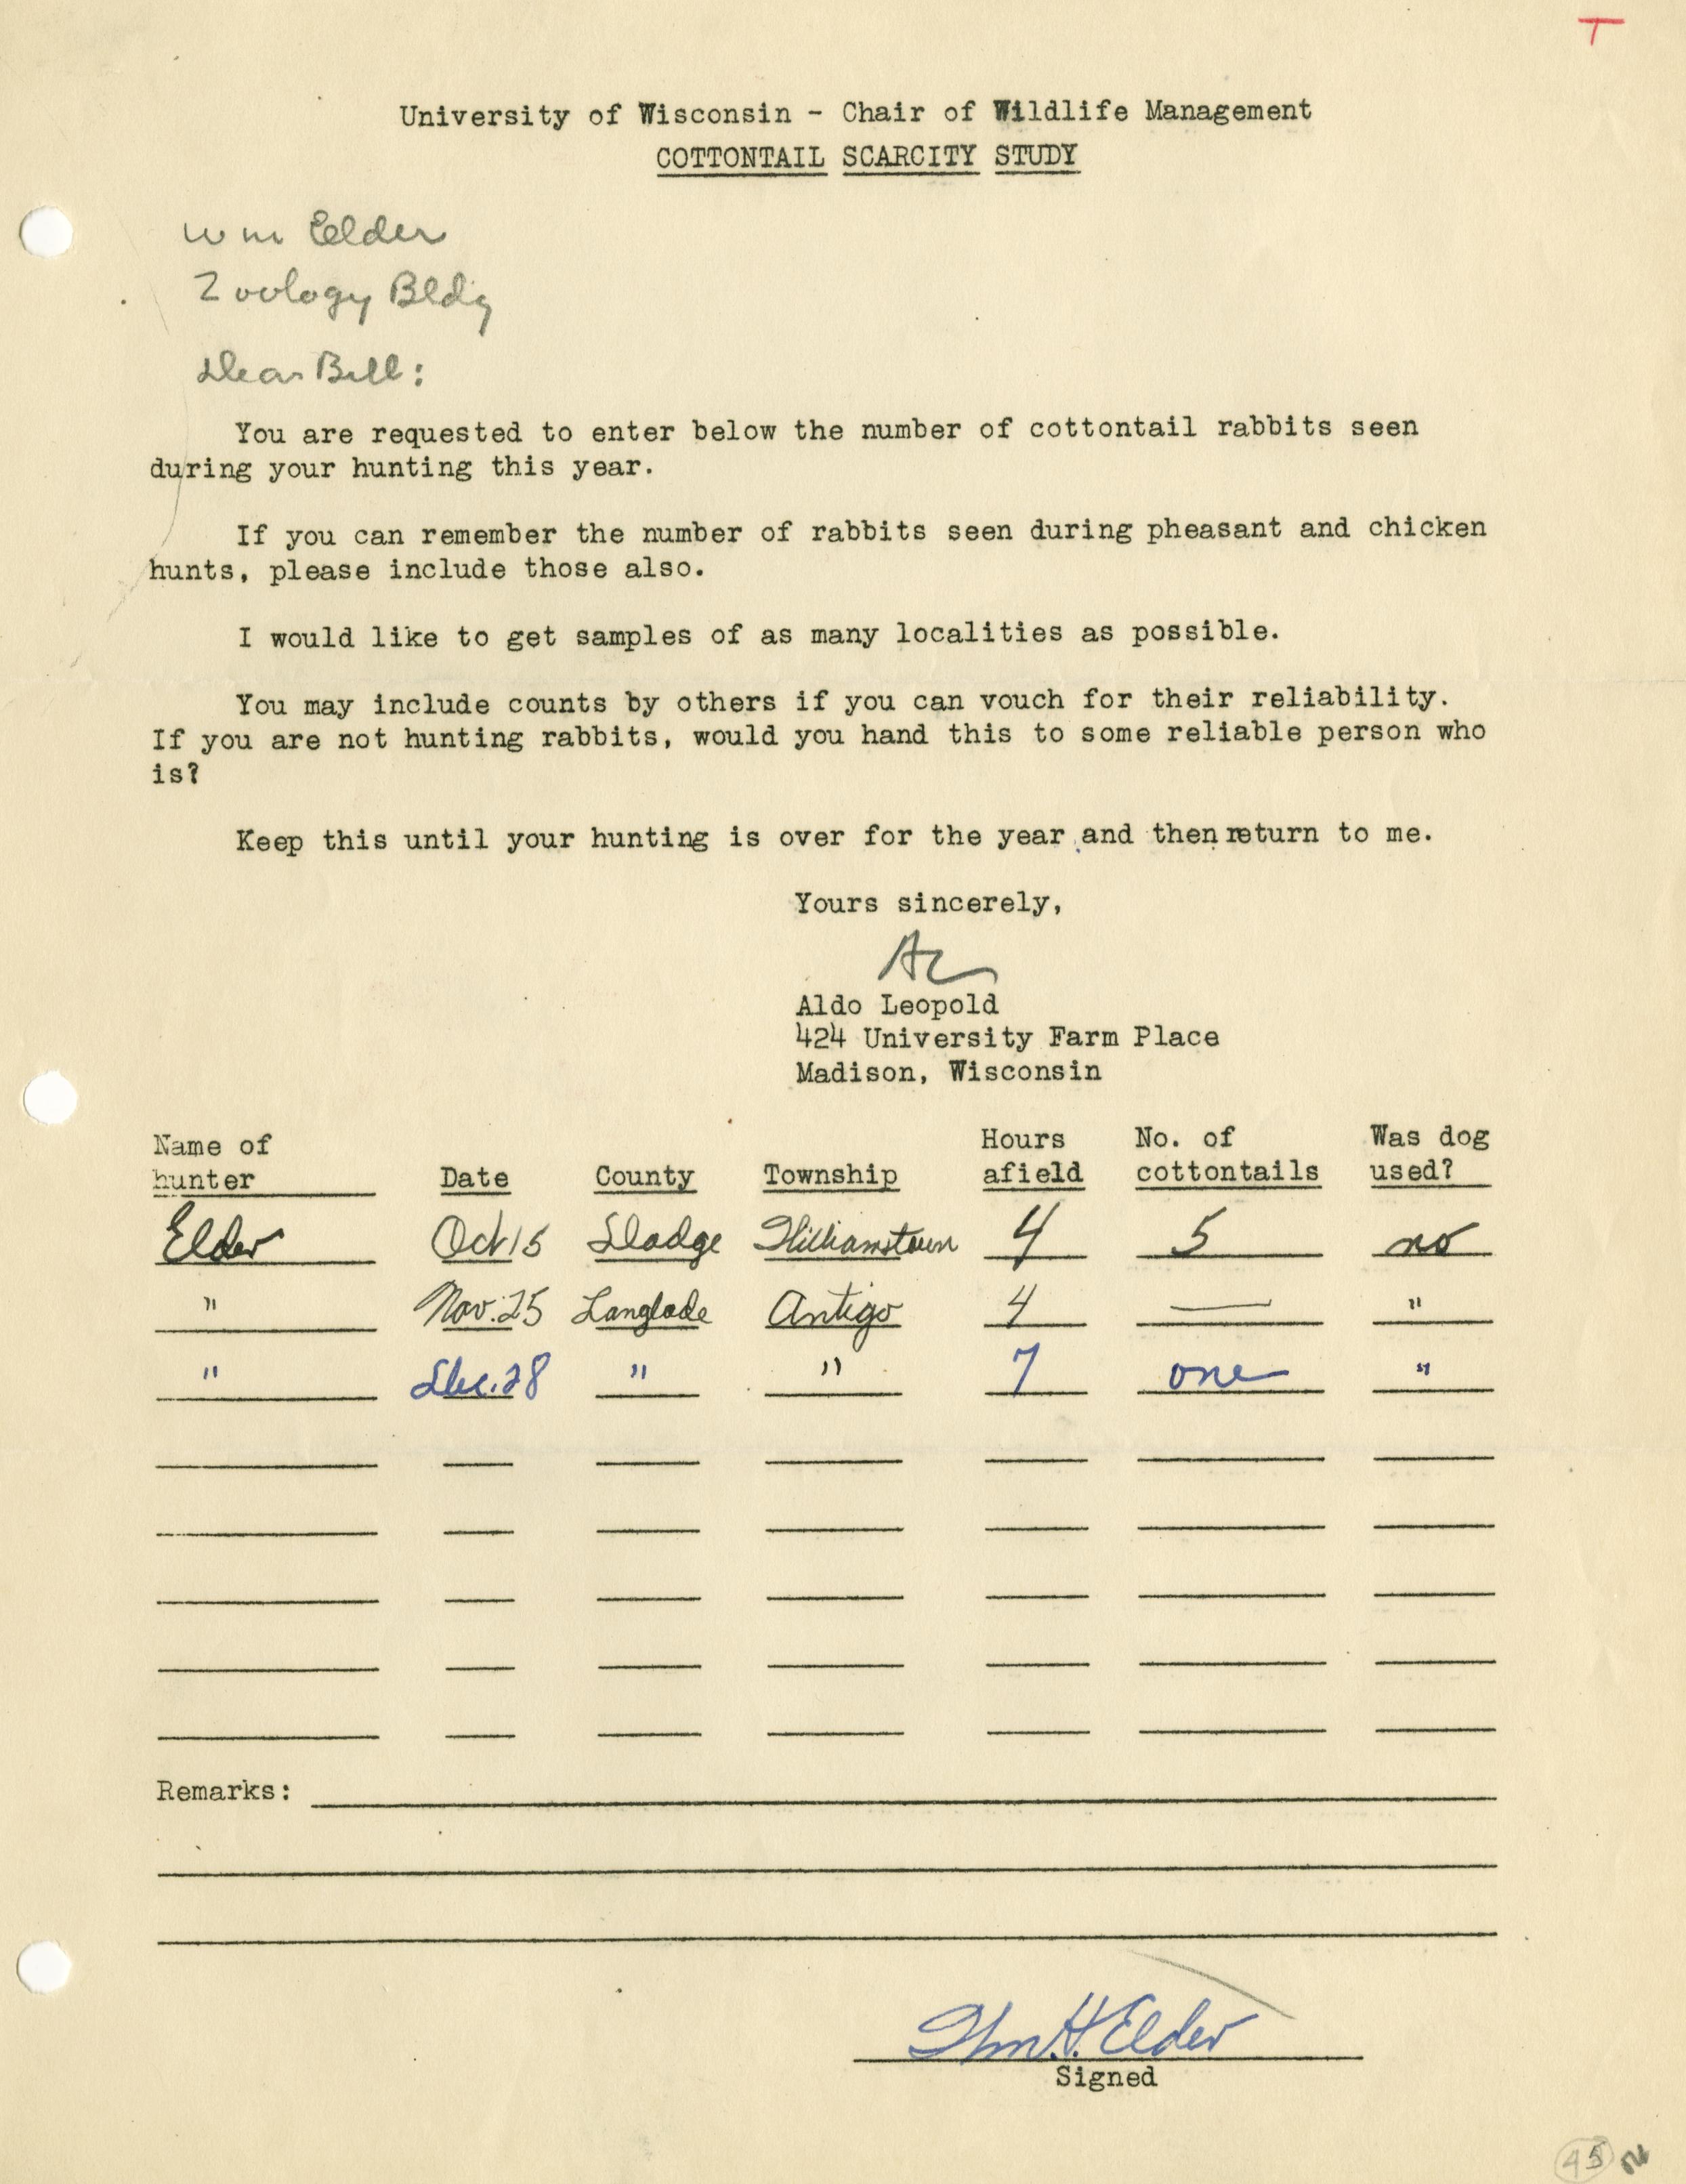 T
University of Wisconsin - Chair of Wildlife Management
COTTONTAIL SCARCITY STUDY
Wm Elder
Zoology Bldg
Dear Bill:
You are requested to enter below the number of cottontail rabbits seen
during your hunting this year.
If you can remember the number of rabbits seen during pheasant and chicken
hunts, please include those also.
I would like to get samples of as many localities as possible.
You may include counts by others if you can vouch for their reliability.
If you are not hunting rabbits, would you hand this to some reliable person who
is?
Keep this until your hunting is over for the year and then return to me.
Yours sincerely,
AL
Aldo Leopold
424 University Farm Place
Madison, Wisconsin
Name of hunter Date County Township Hours afield No. of cottontails Was dog used?
Elder Oct 15 Dodge Williamstown 4 5 no
" Nov. 25 Langlade Antigo 4 — "
" Dec. 28 " " 7 one "
Remarks:
Wm. H. Elder
Signed
45